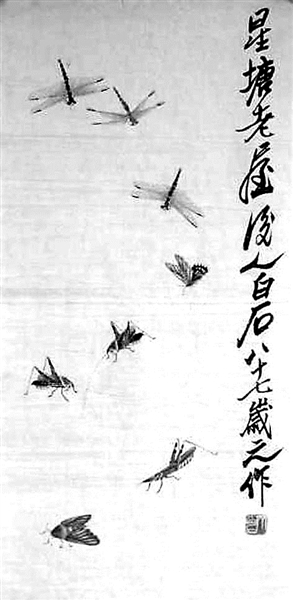 星塘老屋後人白石八十七歲元作